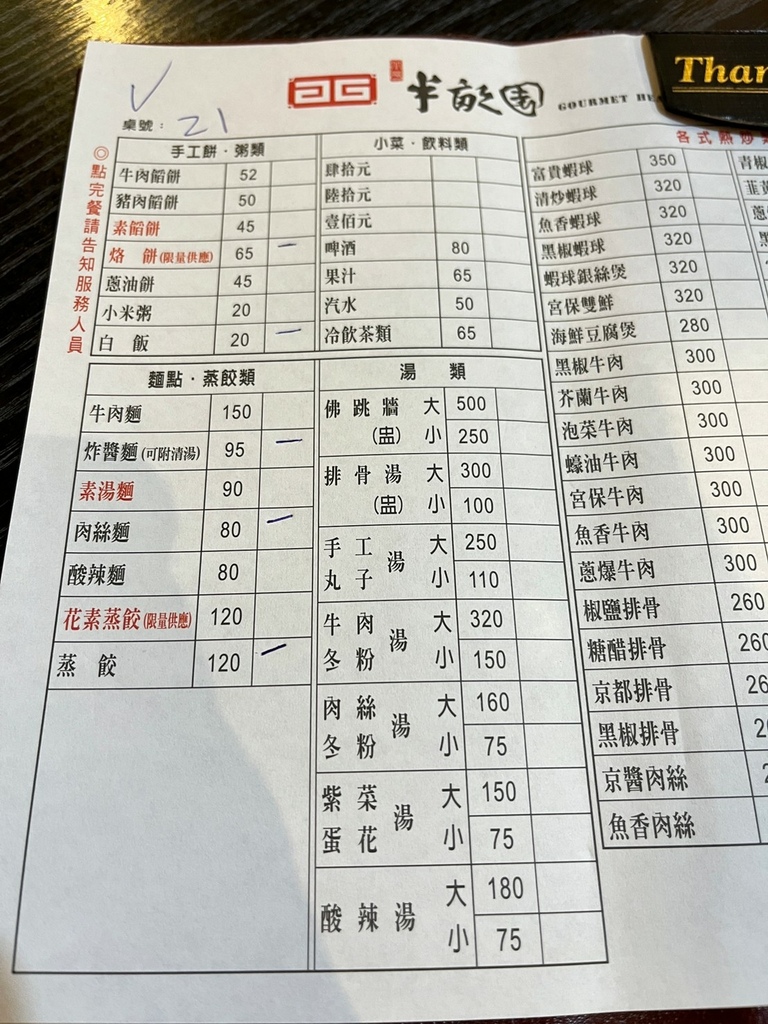 半畝園 GOURMET
Than
桌號： 21
◎點完餐請告知服務人員
手工餅．粥類
牛肉餡餅 52
豬肉餡餅 50
素餡餅 45
烙 餅(限量供應) 65 一
蔥油餅 45
小米粥 20
白 飯 20 一
麵點．蒸餃類
牛肉麵 150
炸醬麵(可附清湯) 95 一
素湯麵 90
肉絲麵 80 一
酸辣麵 80
花素蒸餃(限量供應) 120
蒸 餃 120 一
小菜．飲料類
肆拾元
陸拾元
壹佰元
啤酒 80
果汁 65
汽水 50
冷飲茶類 65
湯 類
佛跳牆(盅) 大 500
小 250
排骨湯(盅) 大 300
小 100
手工丸子湯 大 250
小 110
牛肉冬粉湯 大 320
小 150
肉絲冬粉湯 大 160
小 75
紫菜蛋花湯 大 150
小 75
酸辣湯 大 180
小 75
各式熱炒
富貴蝦球 350
清炒蝦球 320
魚香蝦球 320
黑椒蝦球 320
蝦球銀絲煲 320
宮保雙鮮 320
海鮮豆腐煲 280
黑椒牛肉 300
芥蘭牛肉 300
泡菜牛肉 300
蠔油牛肉 300
宮保牛肉 300
魚香牛肉 300
蔥爆牛肉 300
椒鹽排骨 260
糖醋排骨 260
京都排骨 26
黑椒排骨 2
京醬肉絲 2
魚香肉絲
青椒
韭黃